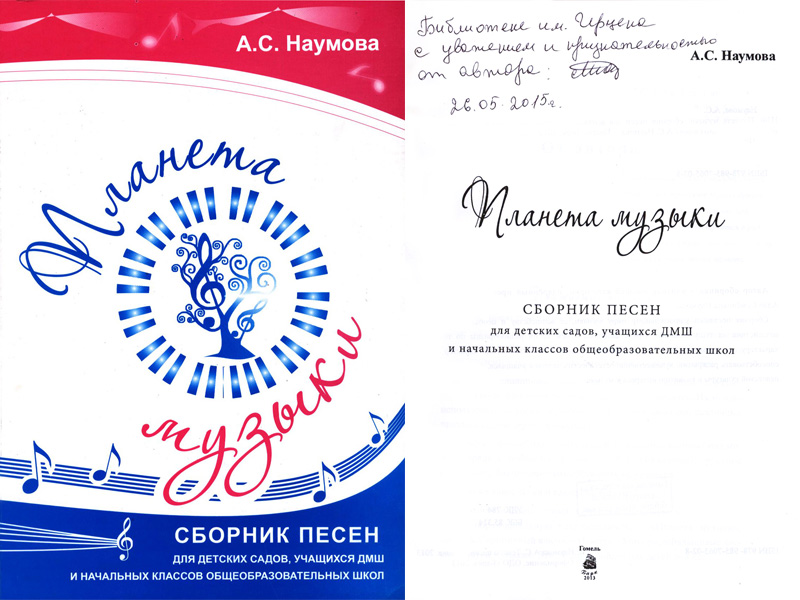 А.С. Наумова
Планета
музыки
СБОРНИК ПЕСЕН
ДЛЯ ДЕТСКИХ САДОВ, УЧАЩИХСЯ ДМШ
И НАЧАЛЬНЫХ КЛАССОВ ОБЩЕОБРАЗОВАТЕЛЬНЫХ ШКОЛ
Библиотеке им. Герцена
с уважением и признательностью
от автора:
26.05.2015г.
А.С. Наумова
Планета музыки
СБОРНИК ПЕСЕН
для детских садов, учащихся ДМШ
и начальных классов общеобразовательных школ
Гомель
Барк
2013